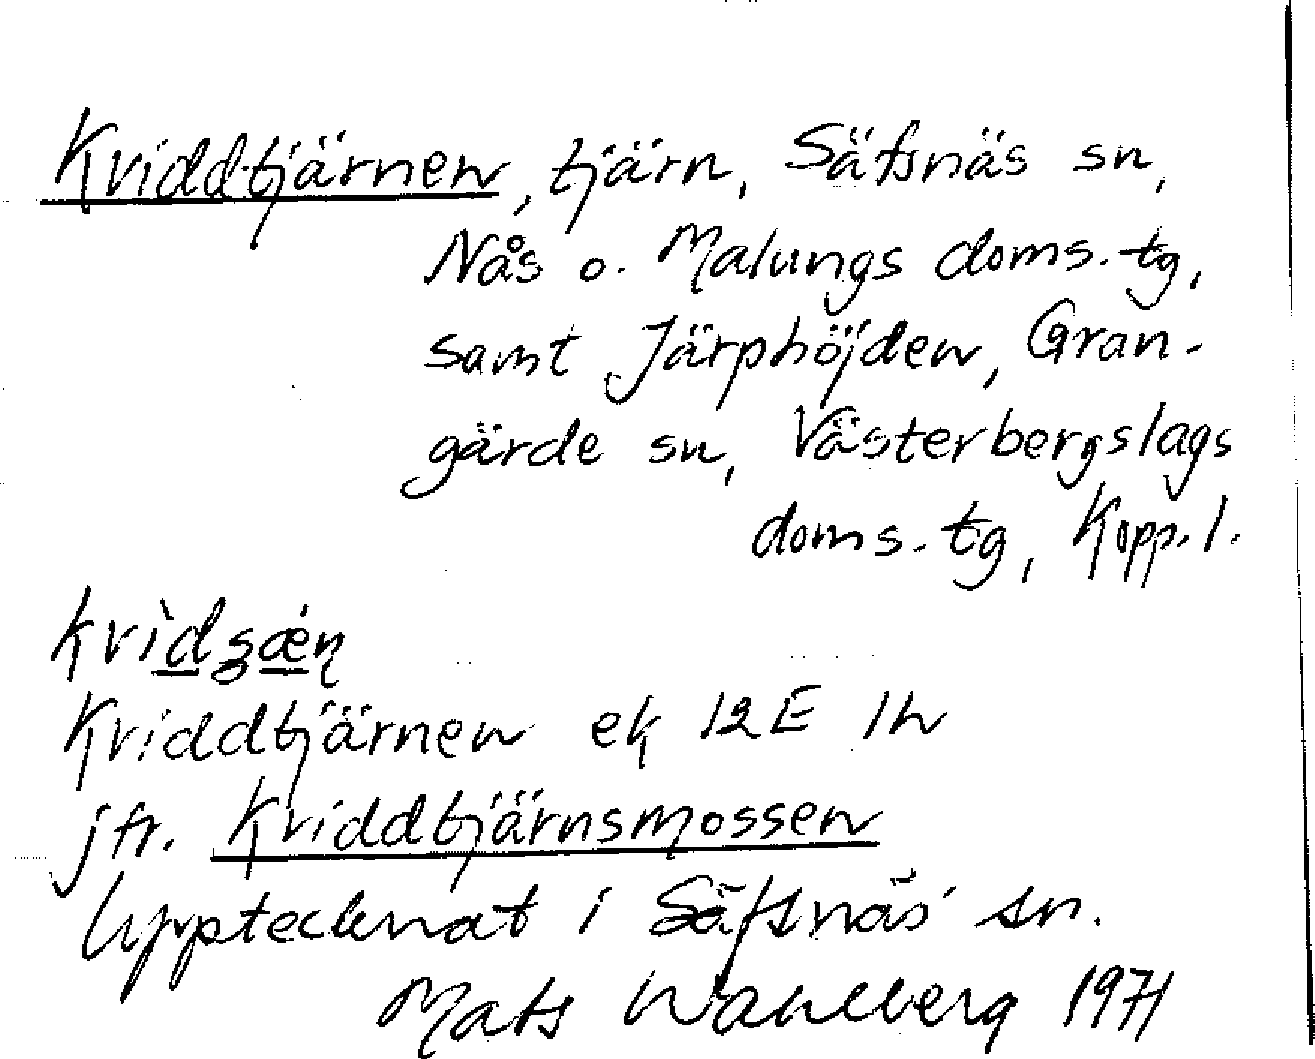 Kviddtjärnen, tjärn, Säfsnäs sn,
Nås o. Malungs doms.tg,
samt Järphöjden, Gran-
gärde sn, Västerbergslags
doms.tg, Kopp.l.
Kviddtjärnen ek 12E 1h
jfr. Kviddtjärnsmossen
Upptecknat i Säfsnäs sn.
Mats Wahlberg 1971